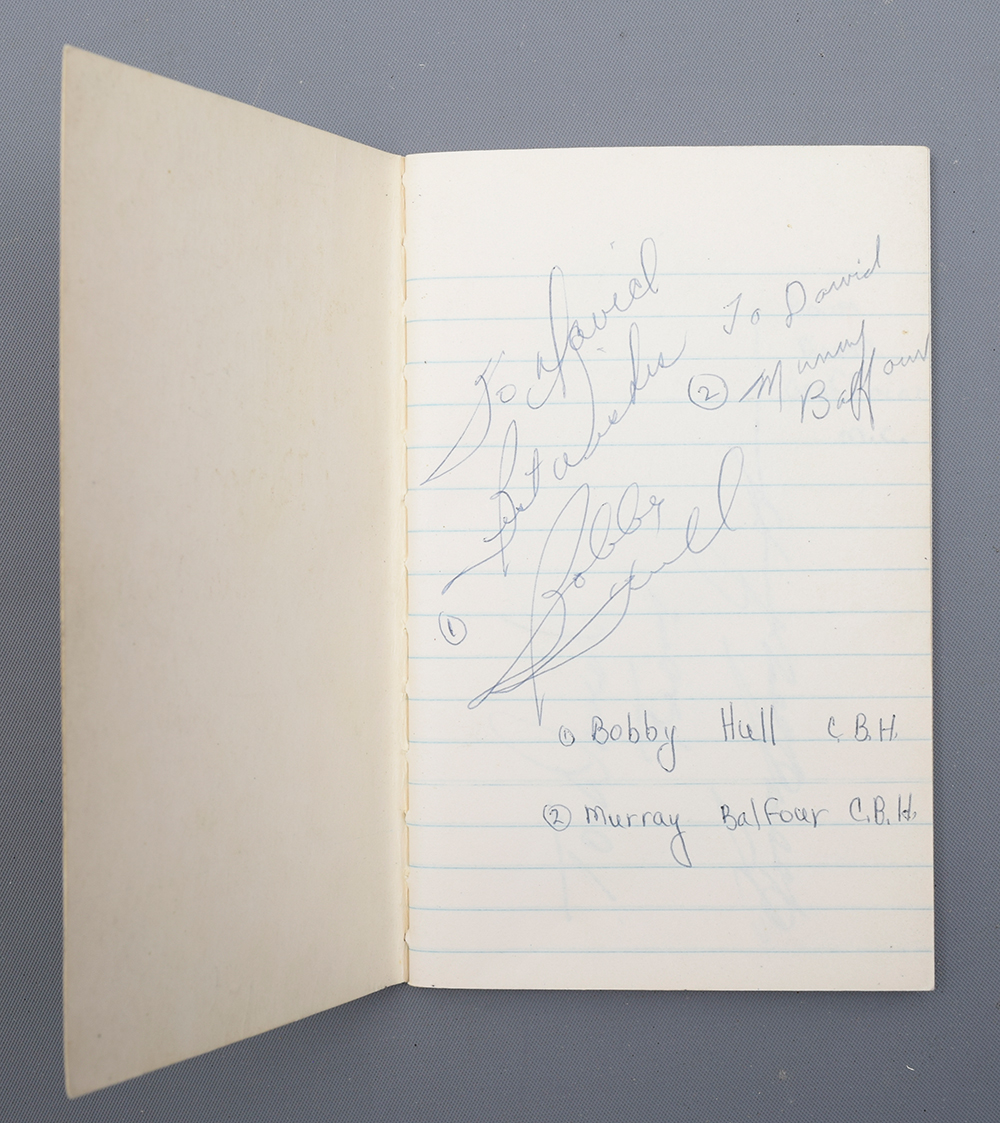 To David
Best wishes
Bobby
Hull
①
To David
② Murray
Balfour
① Bobby Hull C.B.H.
② Murray Balfour C.B.H.